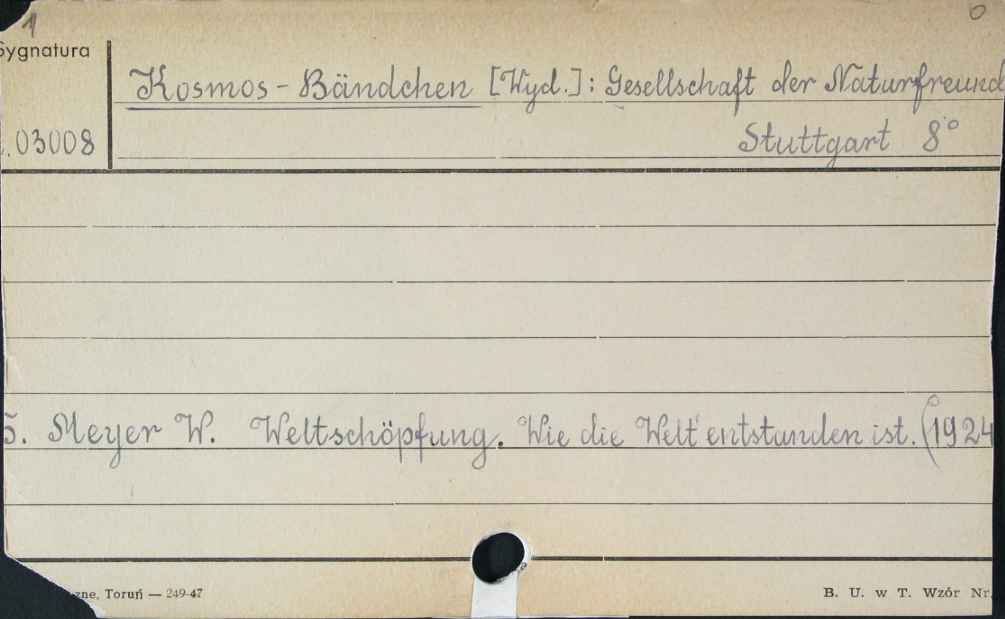 1
0
Sygnatura
Kosmos - Bändchen [Wyd.]: Gesellschaft der Naturfreund
03008
Stuttgart 8°
5. Meyer W. Weltschöpfung. Wie die Welt entstanden ist. (1924
zne, Toruń — 249-47
B. U. w T. Wzór Nr.